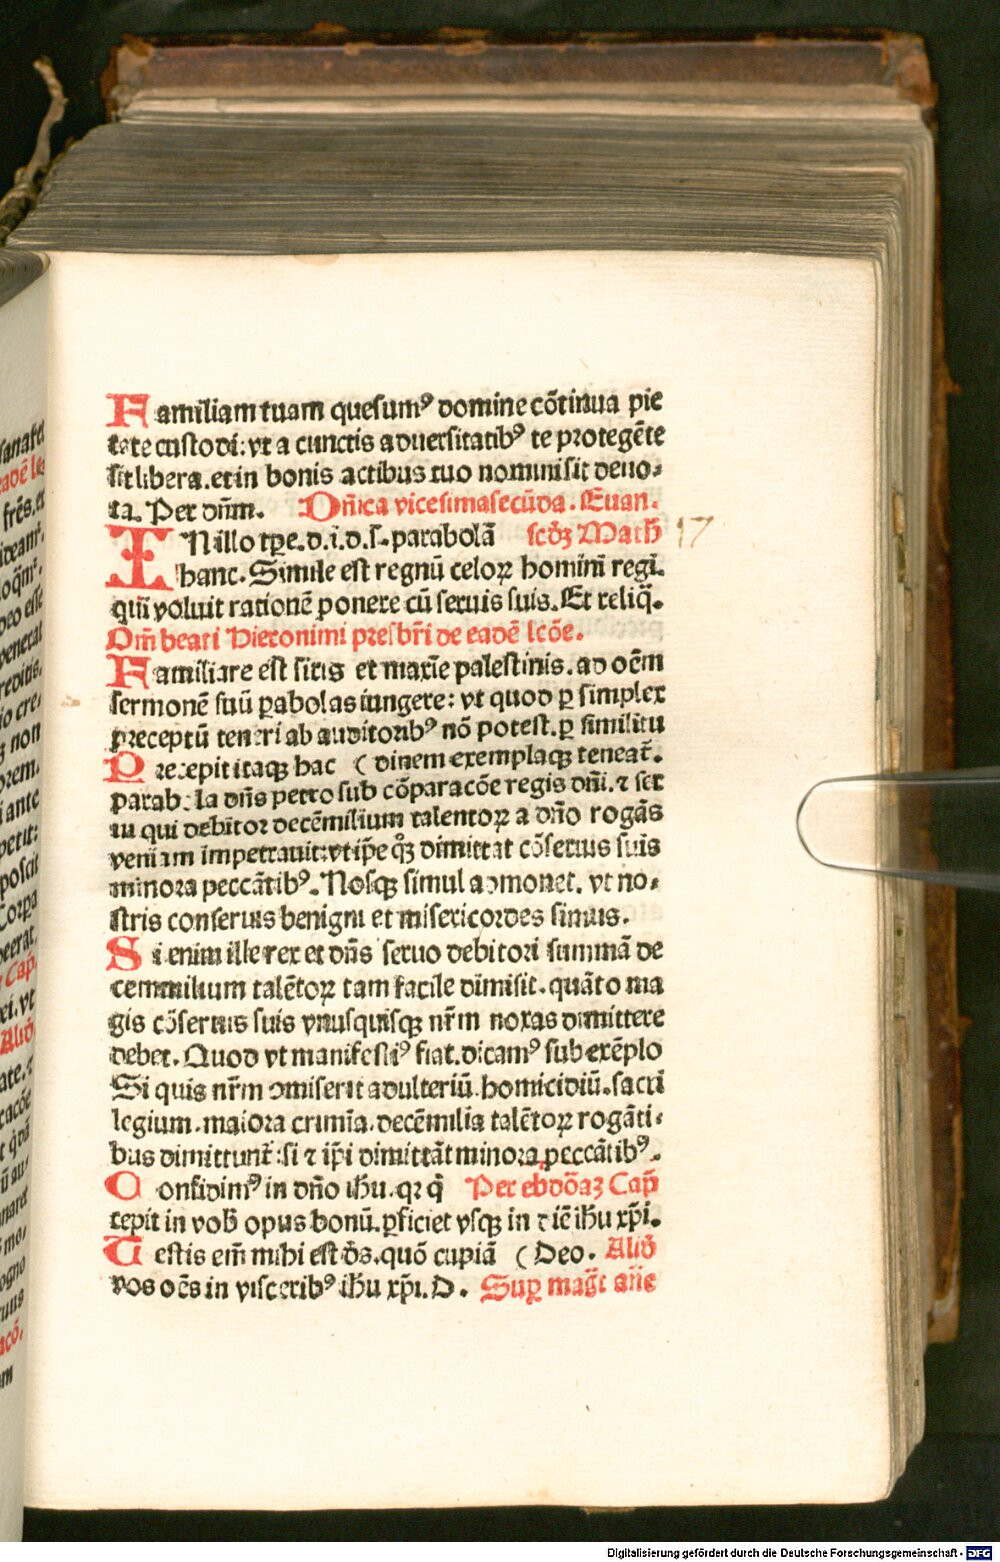 Familiam tuam quesumꝰ domine cõtinua pie
tate custodi: vt a cunctis aduersitatibꝰ te protegẽte
sit libera. et in bonis actibus tuo nomini sit deuo-
ta. Per dñm. Dñica vicesimasecũda. Euan.
IN illo tꝑe. d. i. d. s. parabolã scdꝫ Math̃ 17
hanc. Simile est regnũ celoꝝ homini regi.
qui voluit rationẽ ponere cũ seruis suis. Et reliq̃.
Om̃ beati Hieronimi presbr̃i de eadẽ lcõe.
Familiare est siris et maxĩe palestinis. ad oẽm
sermonẽ suũ ꝑabolas iungere: vt quod ꝑ simplex
preceptũ teneri ab auditoribꝰ nõ potest. ꝑ similitu
Precepit itaqꝫ hac ( dinem exemplaqꝫ teneat̃.
parabola dñs petro sub cõparacõe regis dñi. ⁊ ser
ui qui debitor decẽmilium talentoꝝ a dño rogãs
veniam impetrauit: vt ip̃e qꝫ̊ dimittat cõseruis suis
minora peccãtibꝰ. Nosqꝫ simul admonet. vt no-
stris conseruis benigni et misericordes simus.
Si enim ille rex et dñs seruo debitori summã de
cemmilium talẽtoꝝ tam facile dimisit. quãto ma
gis cõseruis suis vnusquisqꝫ nr̃m noxas dimittere
debet. Quod vt manifestiꝰ fiat. dicamꝰ sub exẽplo
Si quis nr̃m ɔmiserit adulteriũ. homicidiũ. sacri
legium. maiora crimĩa. decẽmilia talẽtoꝝ rogãti-
bus dimittunt̃: si ⁊ ip̃i dimittãt minora peccãtibꝰ.
Confidimꝰ in dño ih̃u. qꝛ q̃ Per ebdõaꝫ Cap̃
cepit in vob̃ opus bonũ. ꝑficiet vsqꝫ in diẽ ih̃u xp̃i.
Testis em̃ mihi est d̃s. quõ cupiã ( Deo. Alid̃
vos oẽs in visceribꝰ ih̃u xp̃i. D. Suꝑ mag̃t añe
Digitalisierung gefördert durch die Deutsche Forschungsgemeinschaft - DFG